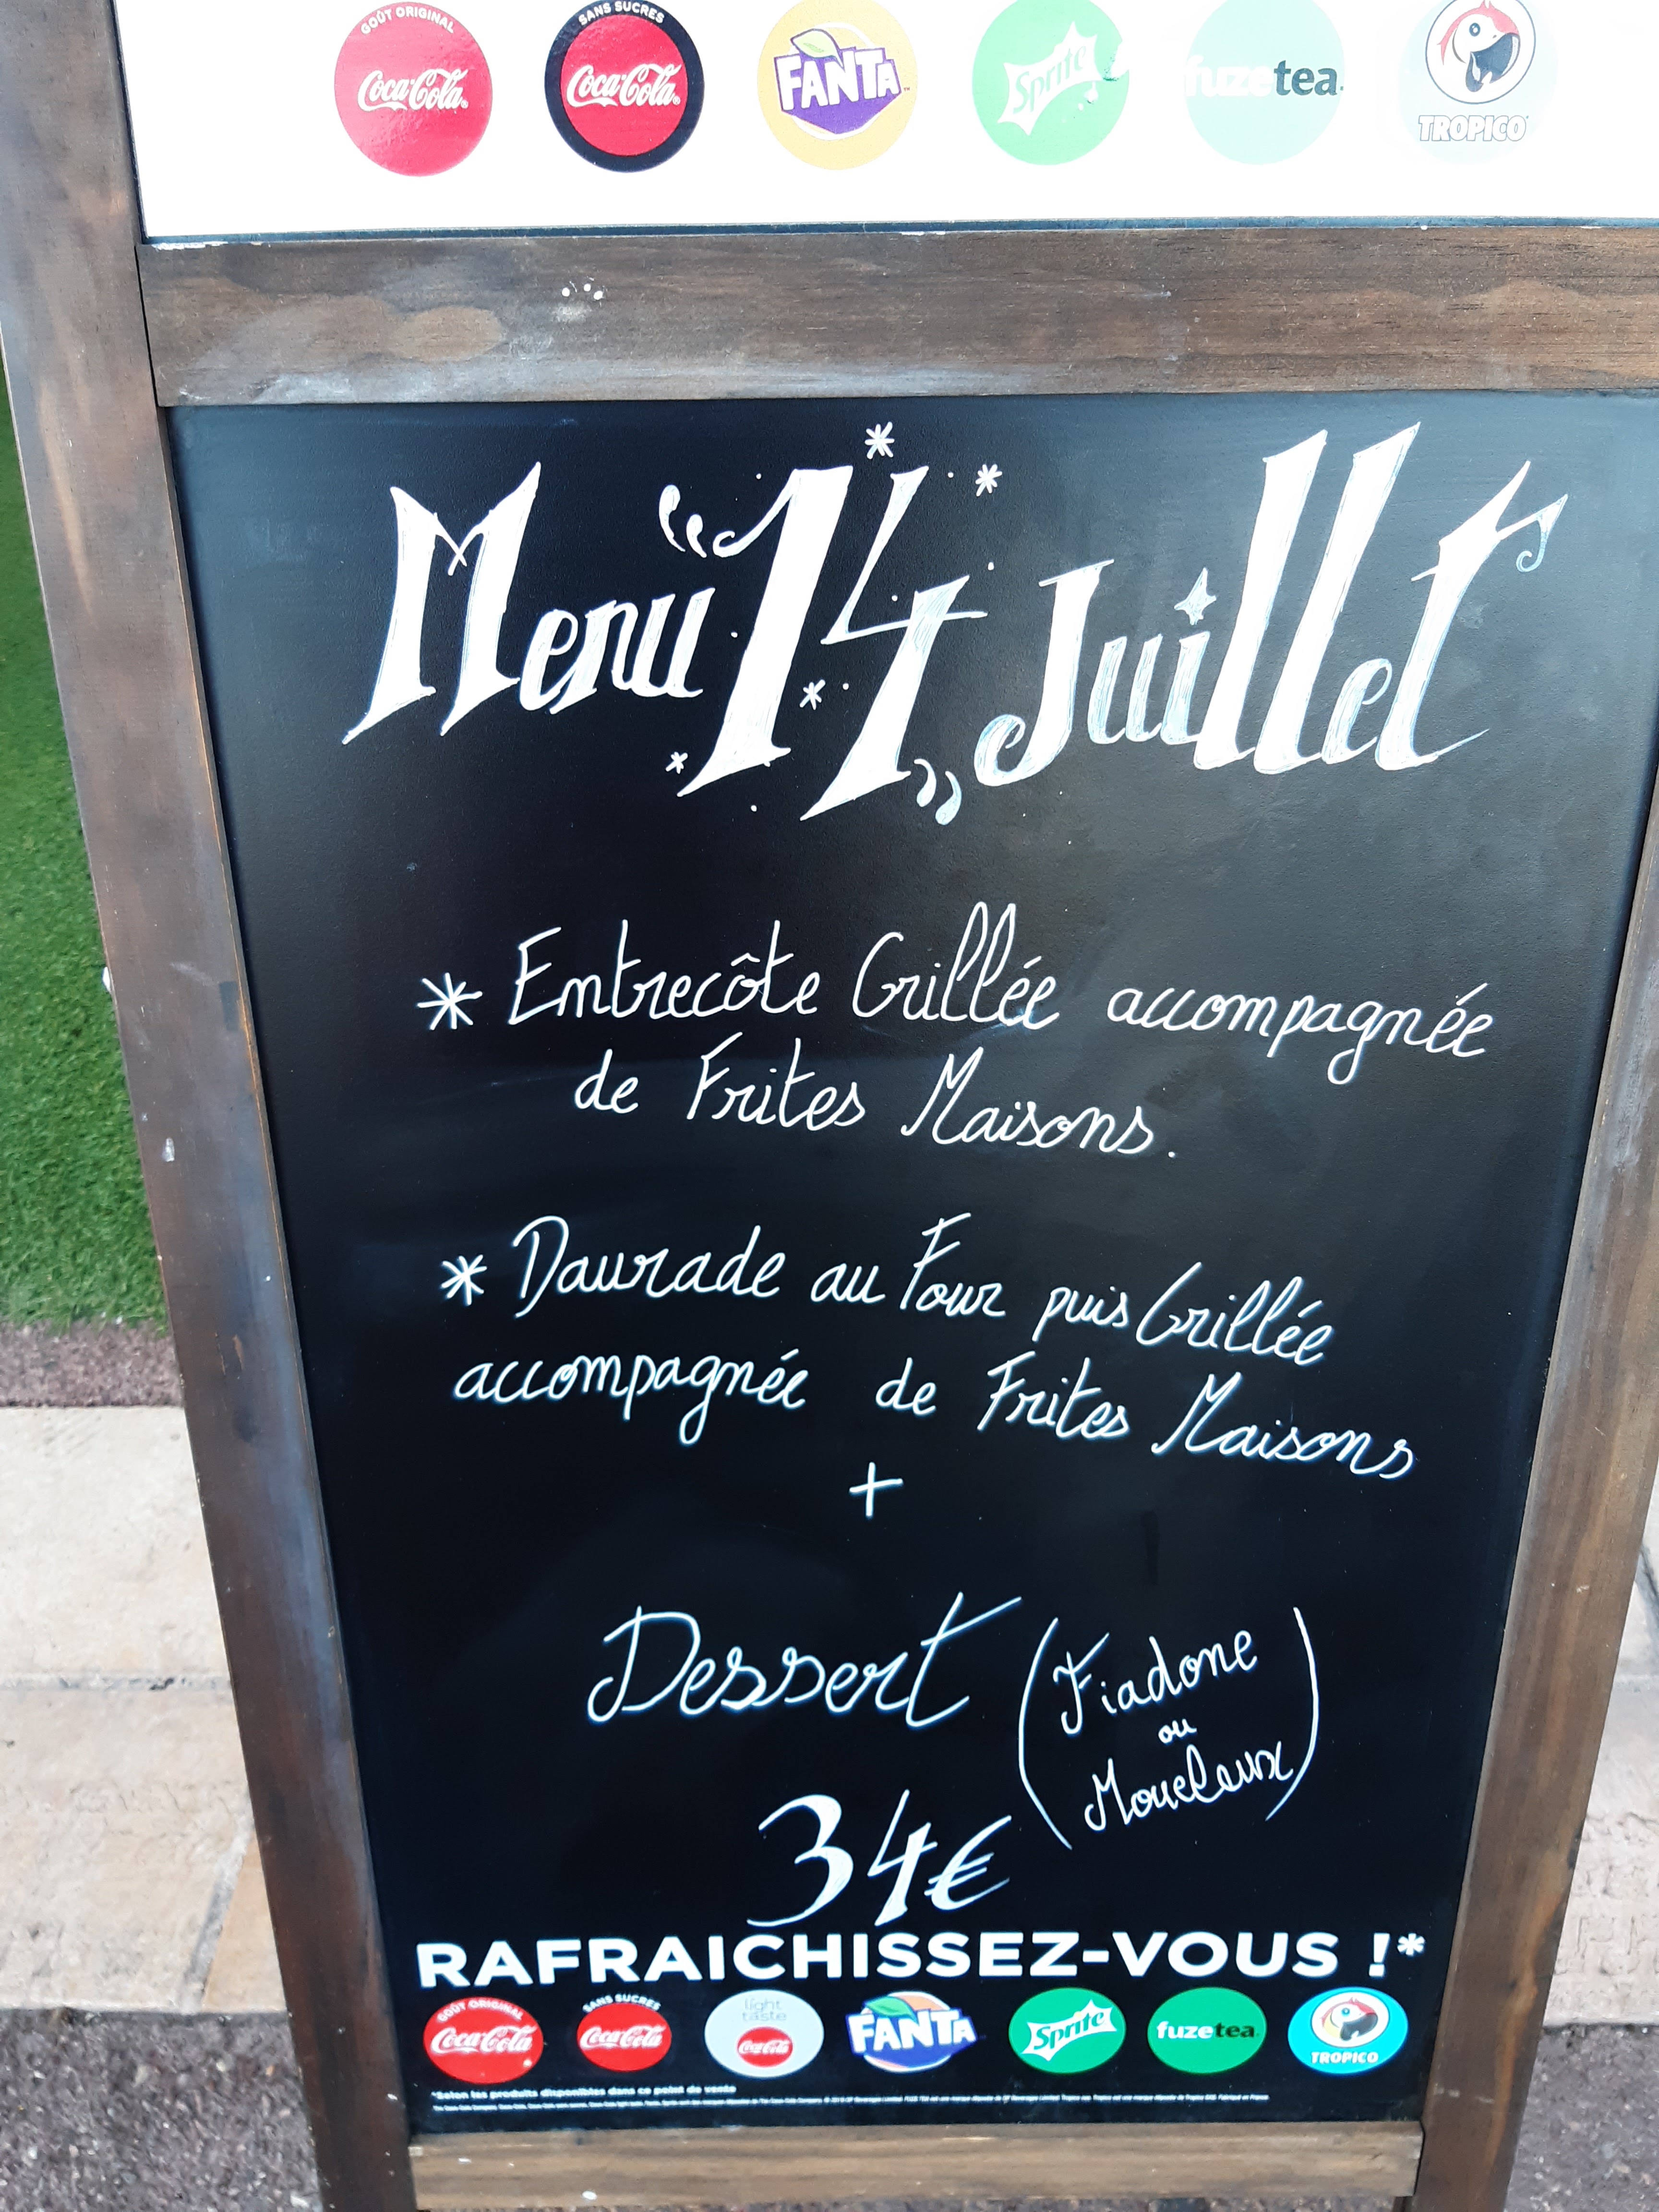 GOÛT ORIGINAL
Coca-Cola
SANS SUCRES
Coca-Cola
FANTA
Sprite
fuzetea
TROPICO
Menu "14" Juillet
* Entrecôte Grillée accompagnée
de Frites Maisons.
* Daurade au Four puis Grillée
accompagnée de Frites Maisons
+
Dessert (Fiadone
ou
Moueleux)
34€
RAFRAICHISSEZ-VOUS !*
GOÛT ORIGINAL
Coca-Cola
SANS SUCRES
Coca-Cola
light
taste
Coca-Cola
FANTA
Sprite
fuzetea
TROPICO
*Selon les produits disponibles dans ce point de vente